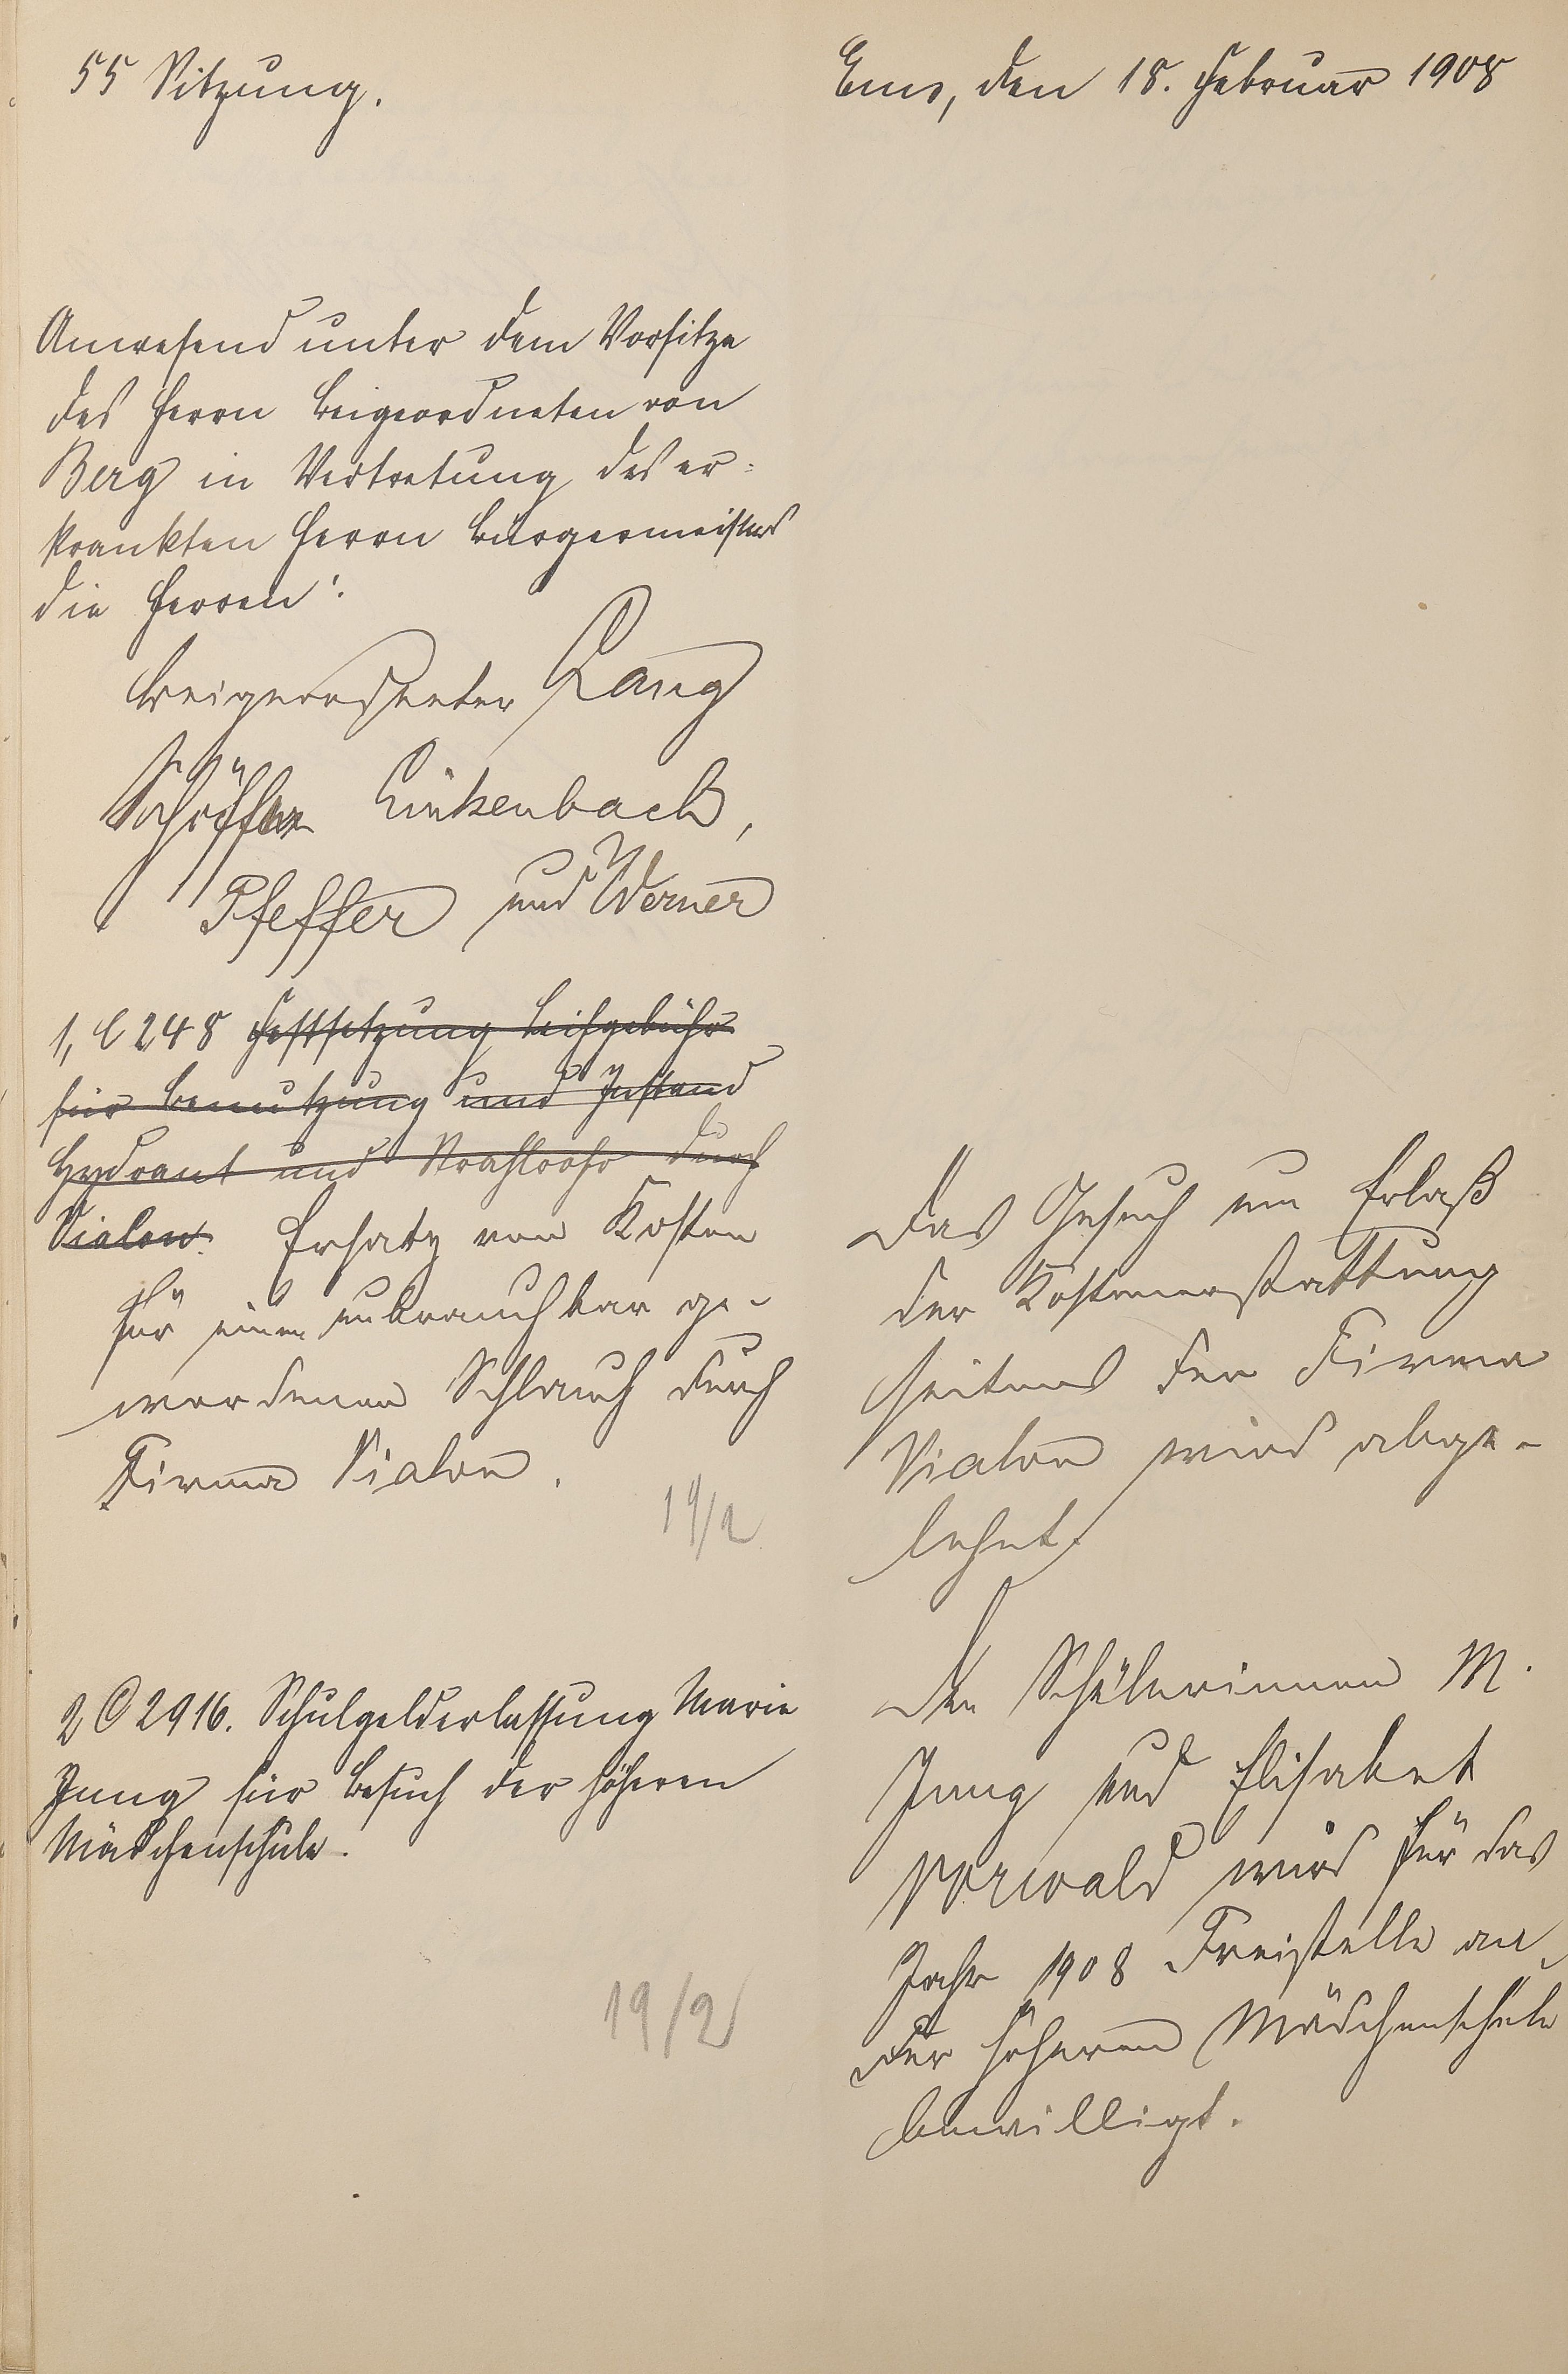 55 Sitzung.
Ems, den 18. Februar 1908
Anwesend unter dem Vorsitze
des Herrn Beigeordneten von
Berg in Vertretung des er-
krankten Herrn Bürgermeisters
die Herren:
Beigeordneter Lang
Schöffen Linkenbach,
Pfeffer und Werner
1, C 248 Festsetzung Leihgebühr
für Benutzung und Instand
Hydrant und Strahlrohr durch
Vialon. Ersatz von Kosten
für einen unbrauchbar ge-
wordenen Schlauch durch
Firma Vialon.
19/2
Das Gesuch um Erlaß
der Kostenerstattung
seitens der Firma
Vialon wird abge-
lehnt.
2 C 2916. Schulgelderlassung Marie
Jung für Besuch der höheren
Mädchenschule.
19/2
Den Schülerinnen M.
Jung und Elisabet
Vorwald wird für das
Jahr 1908 Freistelle an
der höheren Mädchenschule
bewilligt.